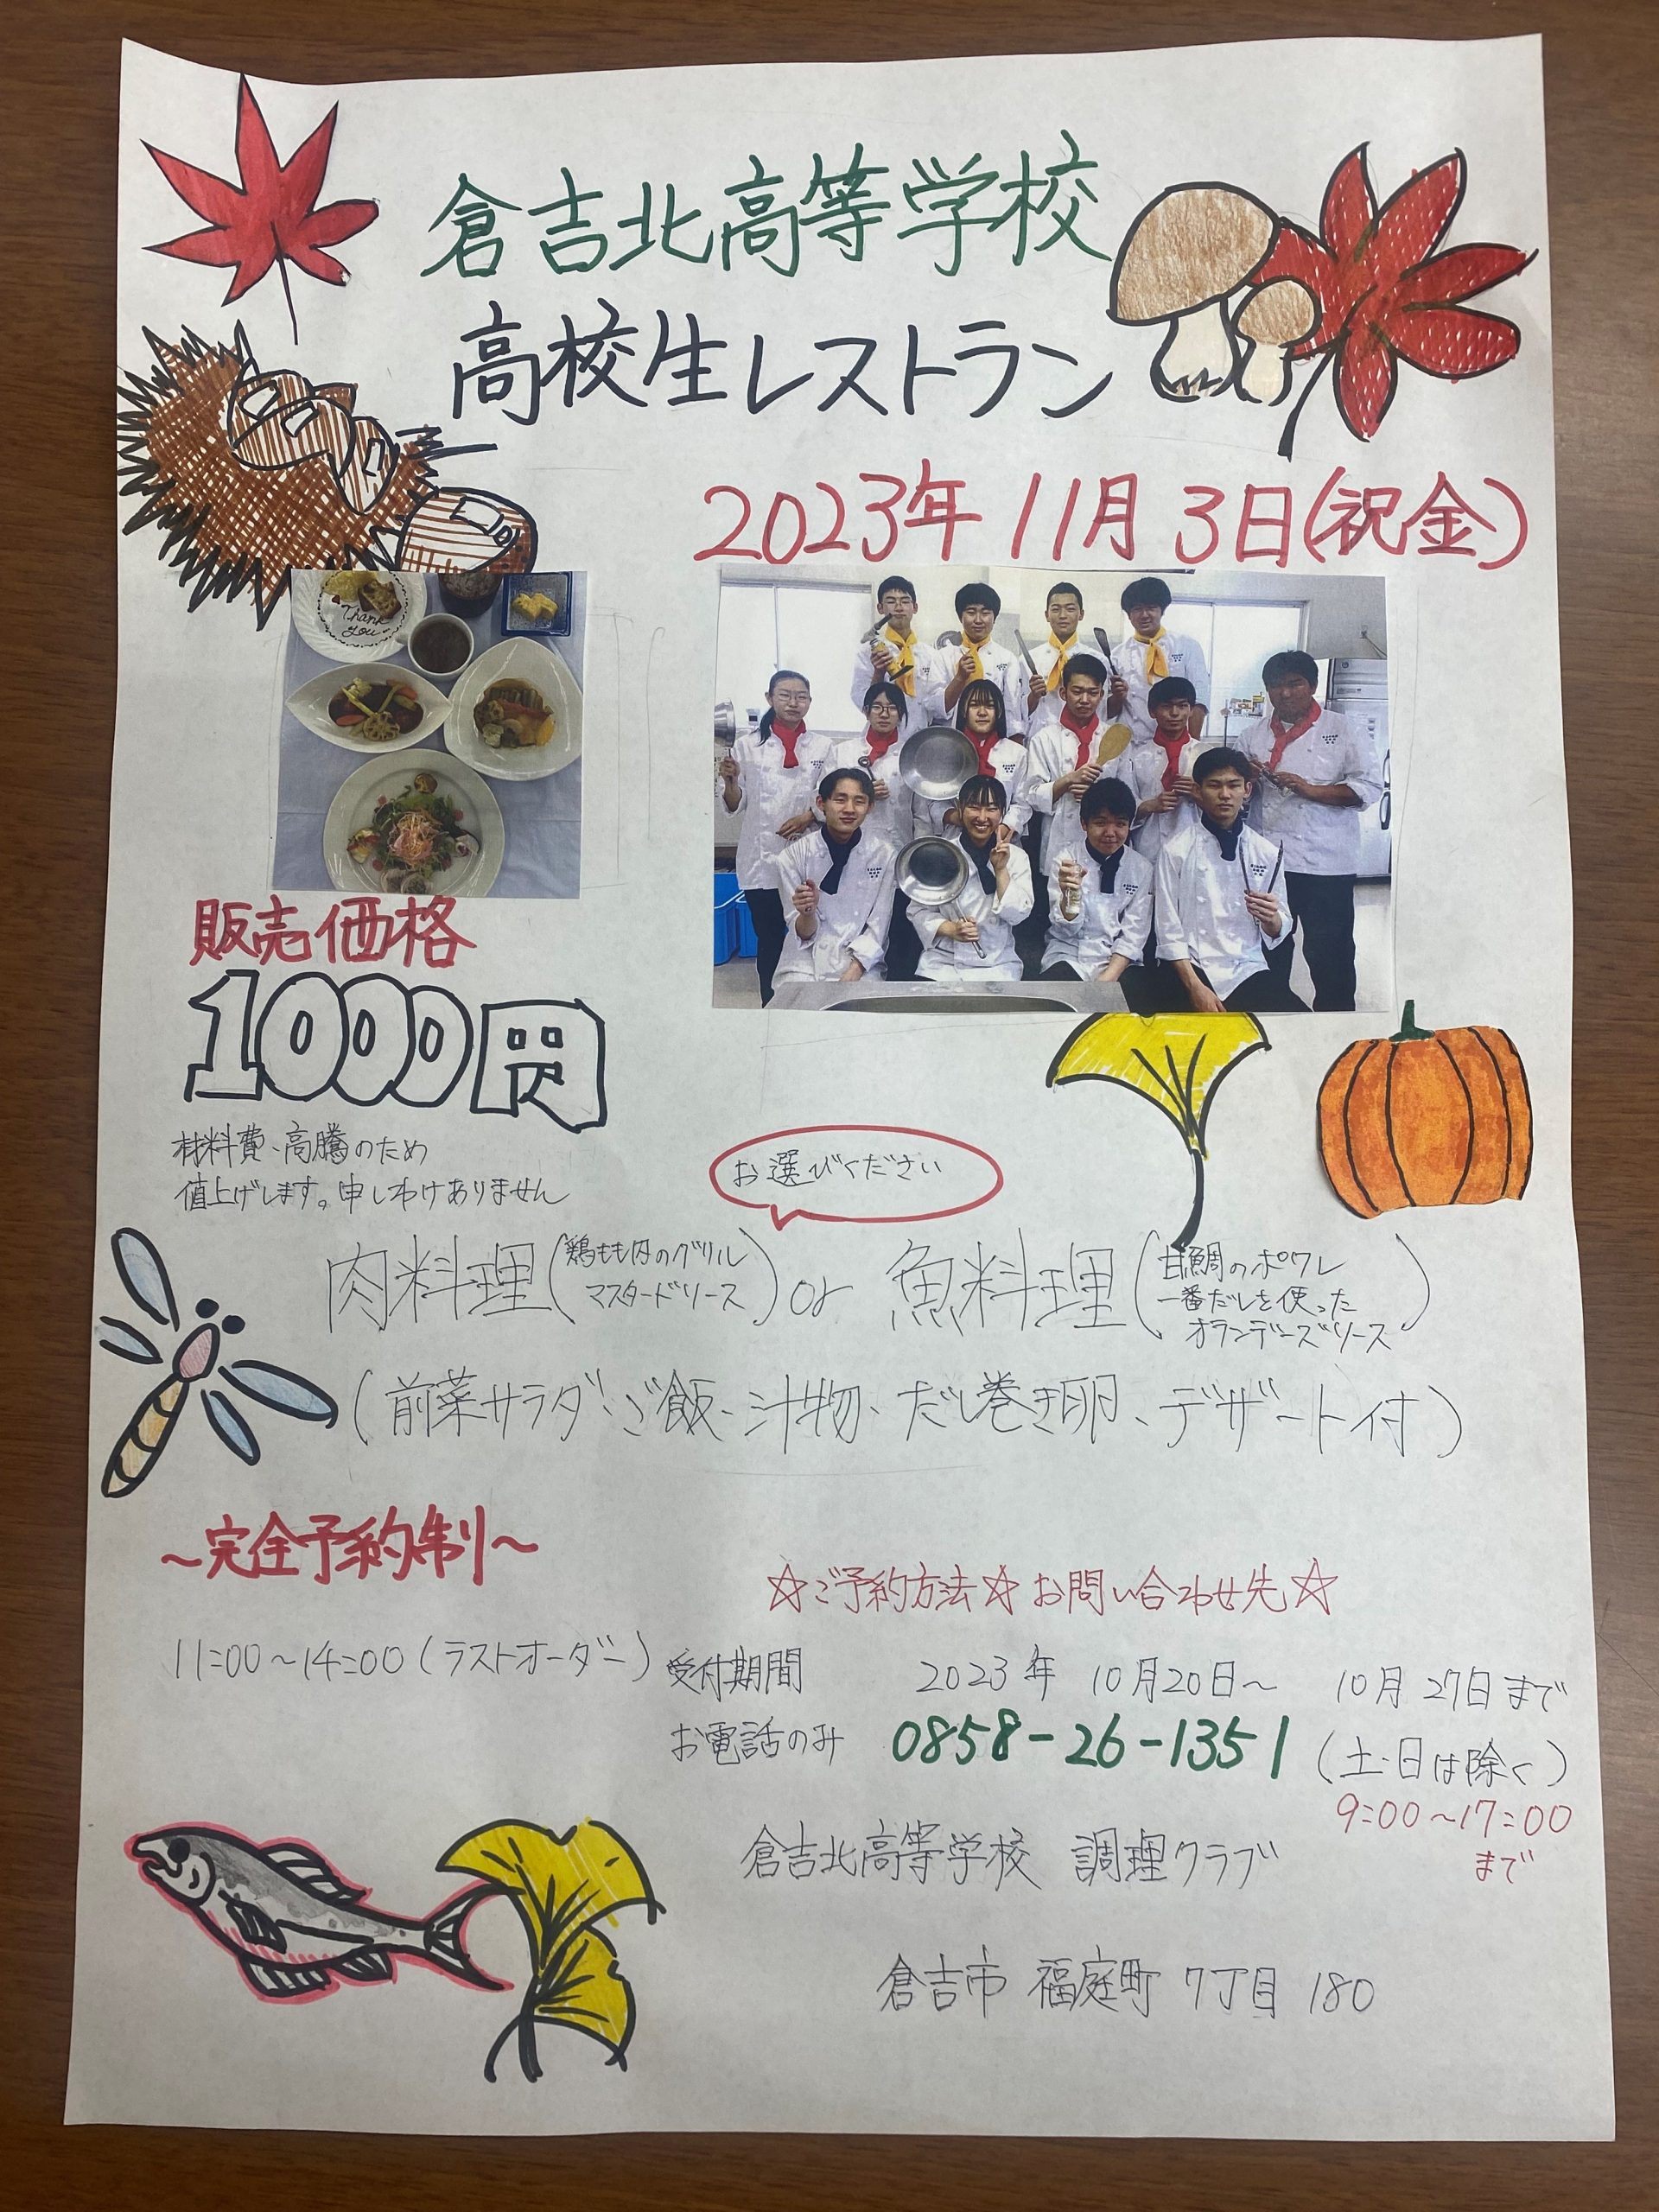 倉吉北高等学校
高校生レストラン
2023年 11月 3日(祝金)
Thank
you
販売価格
1000円
材料費、高騰のため
値上げします。申しわけありません
お選びください
肉料理(鶏もも肉のグリル マスタードソース) or 魚料理(甘鯛のポワレ 一番だしを使った オランデーズソース)
(前菜サラダ、ご飯、汁物、だし巻き卵、デザート付)
~完全予約制~
☆ご予約方法☆お問い合わせ先☆
11:00~14:00(ラストオーダー)
受付期間 2023年 10月20日~ 10月27日まで
お電話のみ 0858-26-1351 (土・日は除く)
9:00~17:00
まで
倉吉北高等学校 調理クラブ
倉吉市 福庭町 7丁目 180